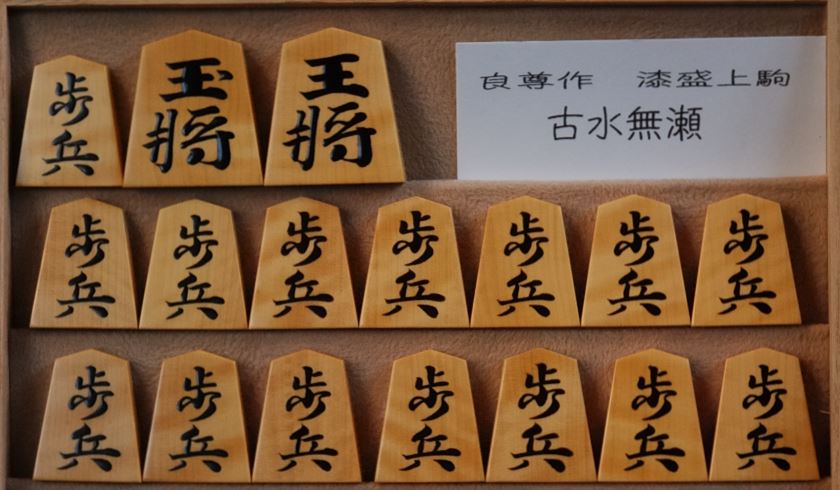 歩兵
玉將
王將
良尊作 漆盛上駒
古水無瀬
歩兵
歩兵
歩兵
歩兵
歩兵
歩兵
歩兵
歩兵
歩兵
歩兵
歩兵
歩兵
歩兵
歩兵